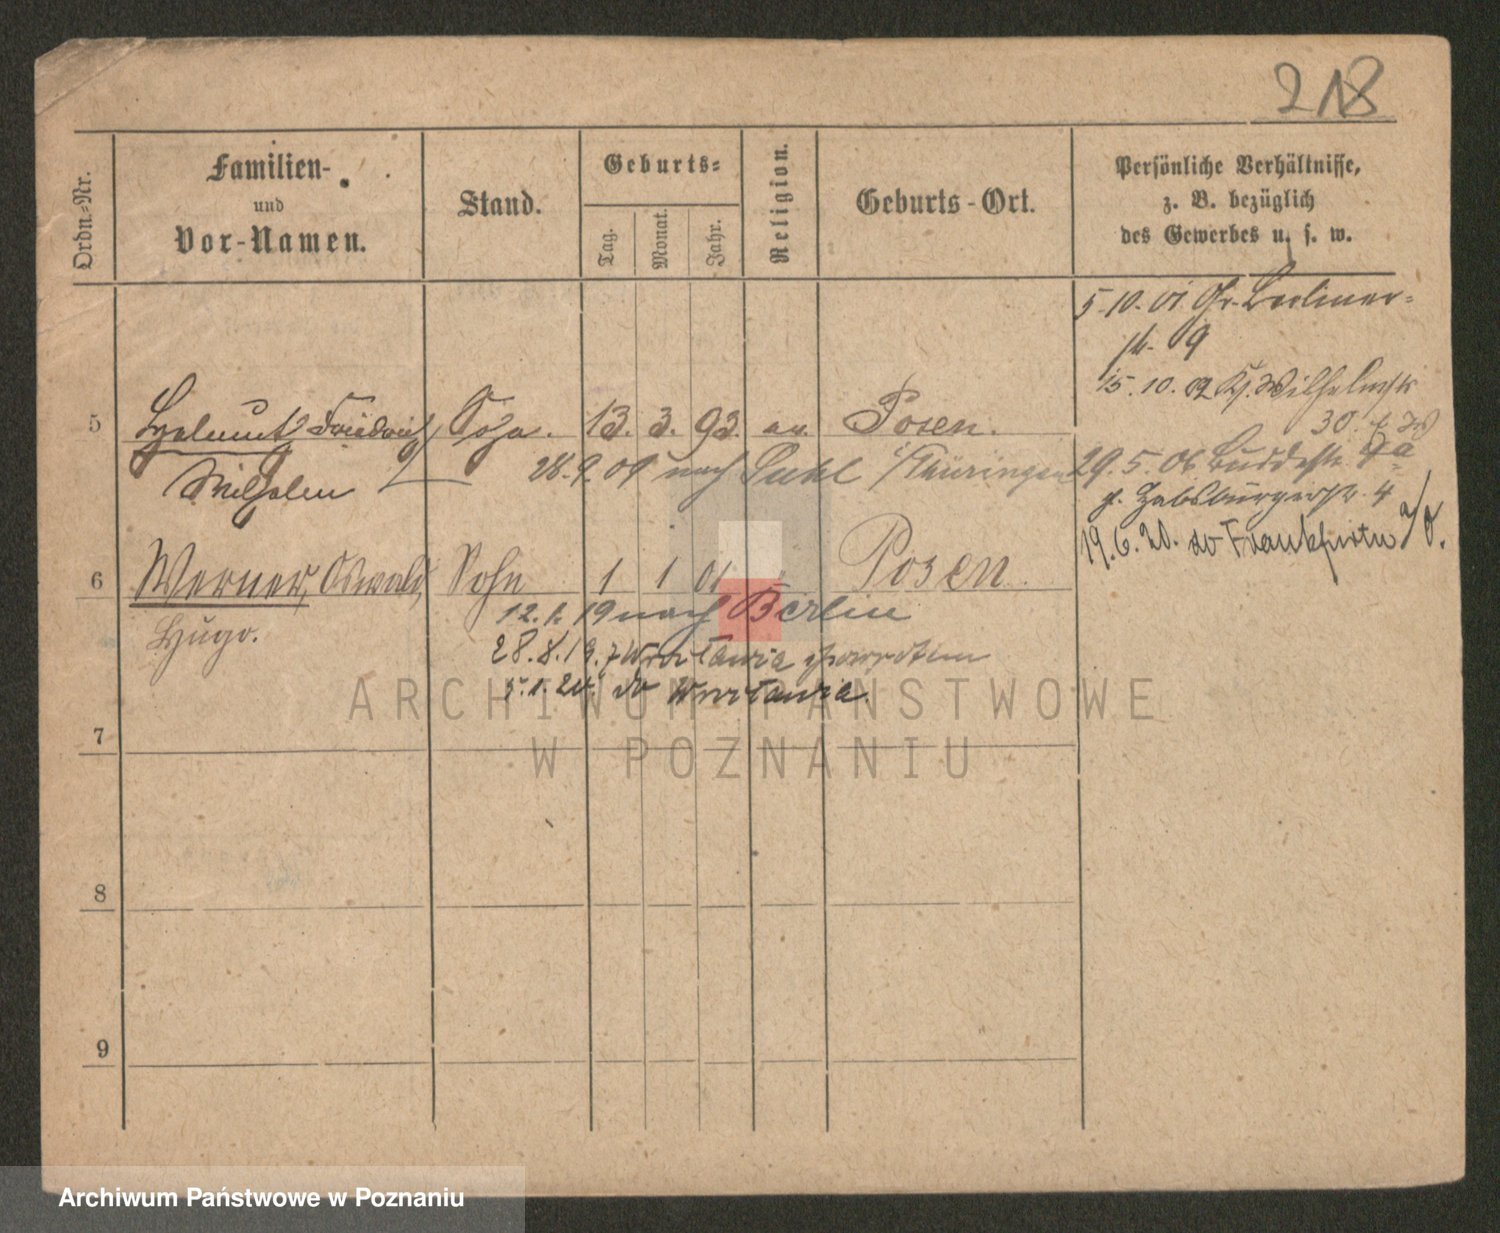 218
Ordn=Nr.
Familien-
und
Vor-Namen.
Stand.
Geburts=
Tag.
Monat.
Jahr.
Religion.
Geburts-Ort.
Persönliche Verhältnisse,
z. B. bezüglich
des Gewerbes u. s. w.
5.10.01 Gr. Berliner=
str. 9
15.10.02 Wilhelmstr
30
5 Helmut Friedrich Sohn. 13. 3. 93. ev. Posen.
Wilhelm
28.9.09 nach Suhl /Thüringen
29.5.06 Buddestr.
Habsburgerstr. 4
19.6.20. do Frankfurtu a/O.
6 Werner, Oswald, Sohn 1 1 01 Posen.
Hugo.
12.1.19 nach Berlin
28.8.19. z Wrocławia
5.1.20. do Wrocławia.
7
8
9
ARCHIWUM PAŃSTWOWE
W POZNANIU
Archiwum Państwowe w Poznaniu